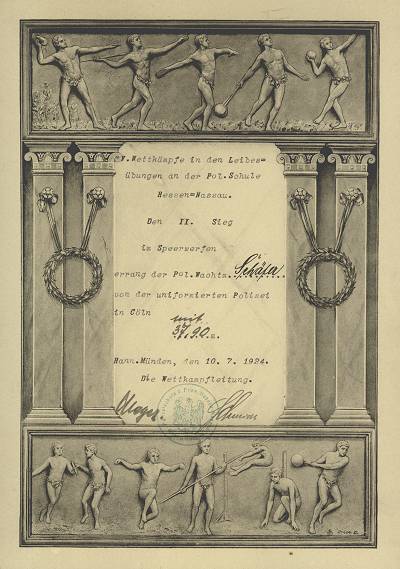 IV. Wettkämpfe in den Leibes=
übungen an der Pol.Schule
Hessen=Nassau.
Den II. Sieg
im Speerwerfen
errang der Pol.Wachtm. Schäfa
von der uniformierten Polizei
in Cöln mit
37,90 m.
Hann.Münden, den 10. 7. 1924.
Die Wettkampfleitung.